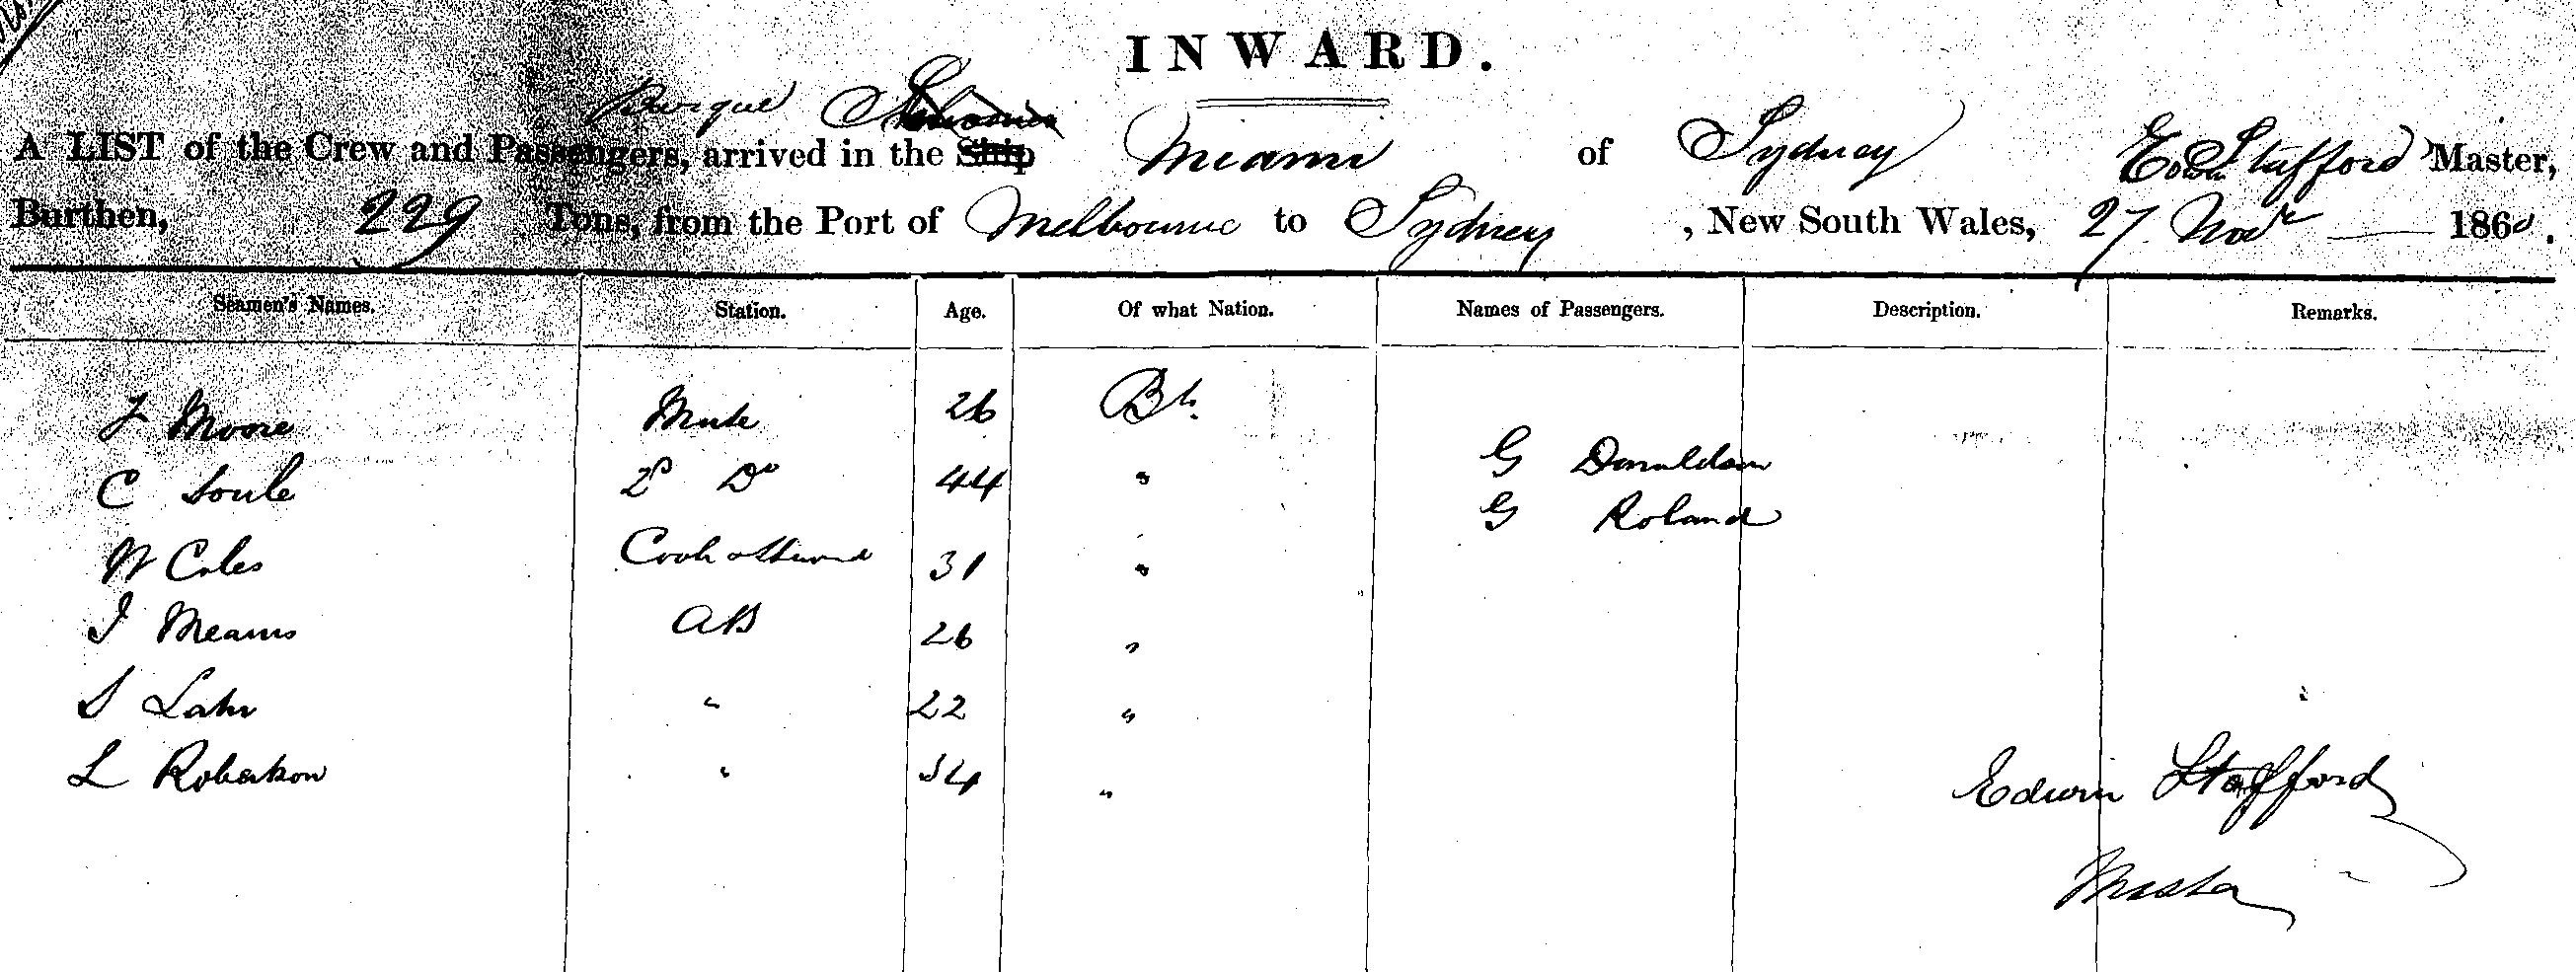 INWARD.
Barque
A LIST of the Crew and Passengers, arrived in the Ship Miami of Sydney Edwin Stafford Master,
Burthen, 229 Tons, from the Port of Melbourne to Sydney, New South Wales, 27 Novr 1860.
Seamen's Names. Station. Age. Of what Nation. Names of Passengers. Description. Remarks.
Moore Mate 26 Bh.
G Donaldson
C Soule 2d Do 44 "
G Roland
W Coles Cook & Steward 31 "
J Mearns AB 26 "
S Lahr " 22 "
L Robertson " 34 "
Edwin Stafford
Master